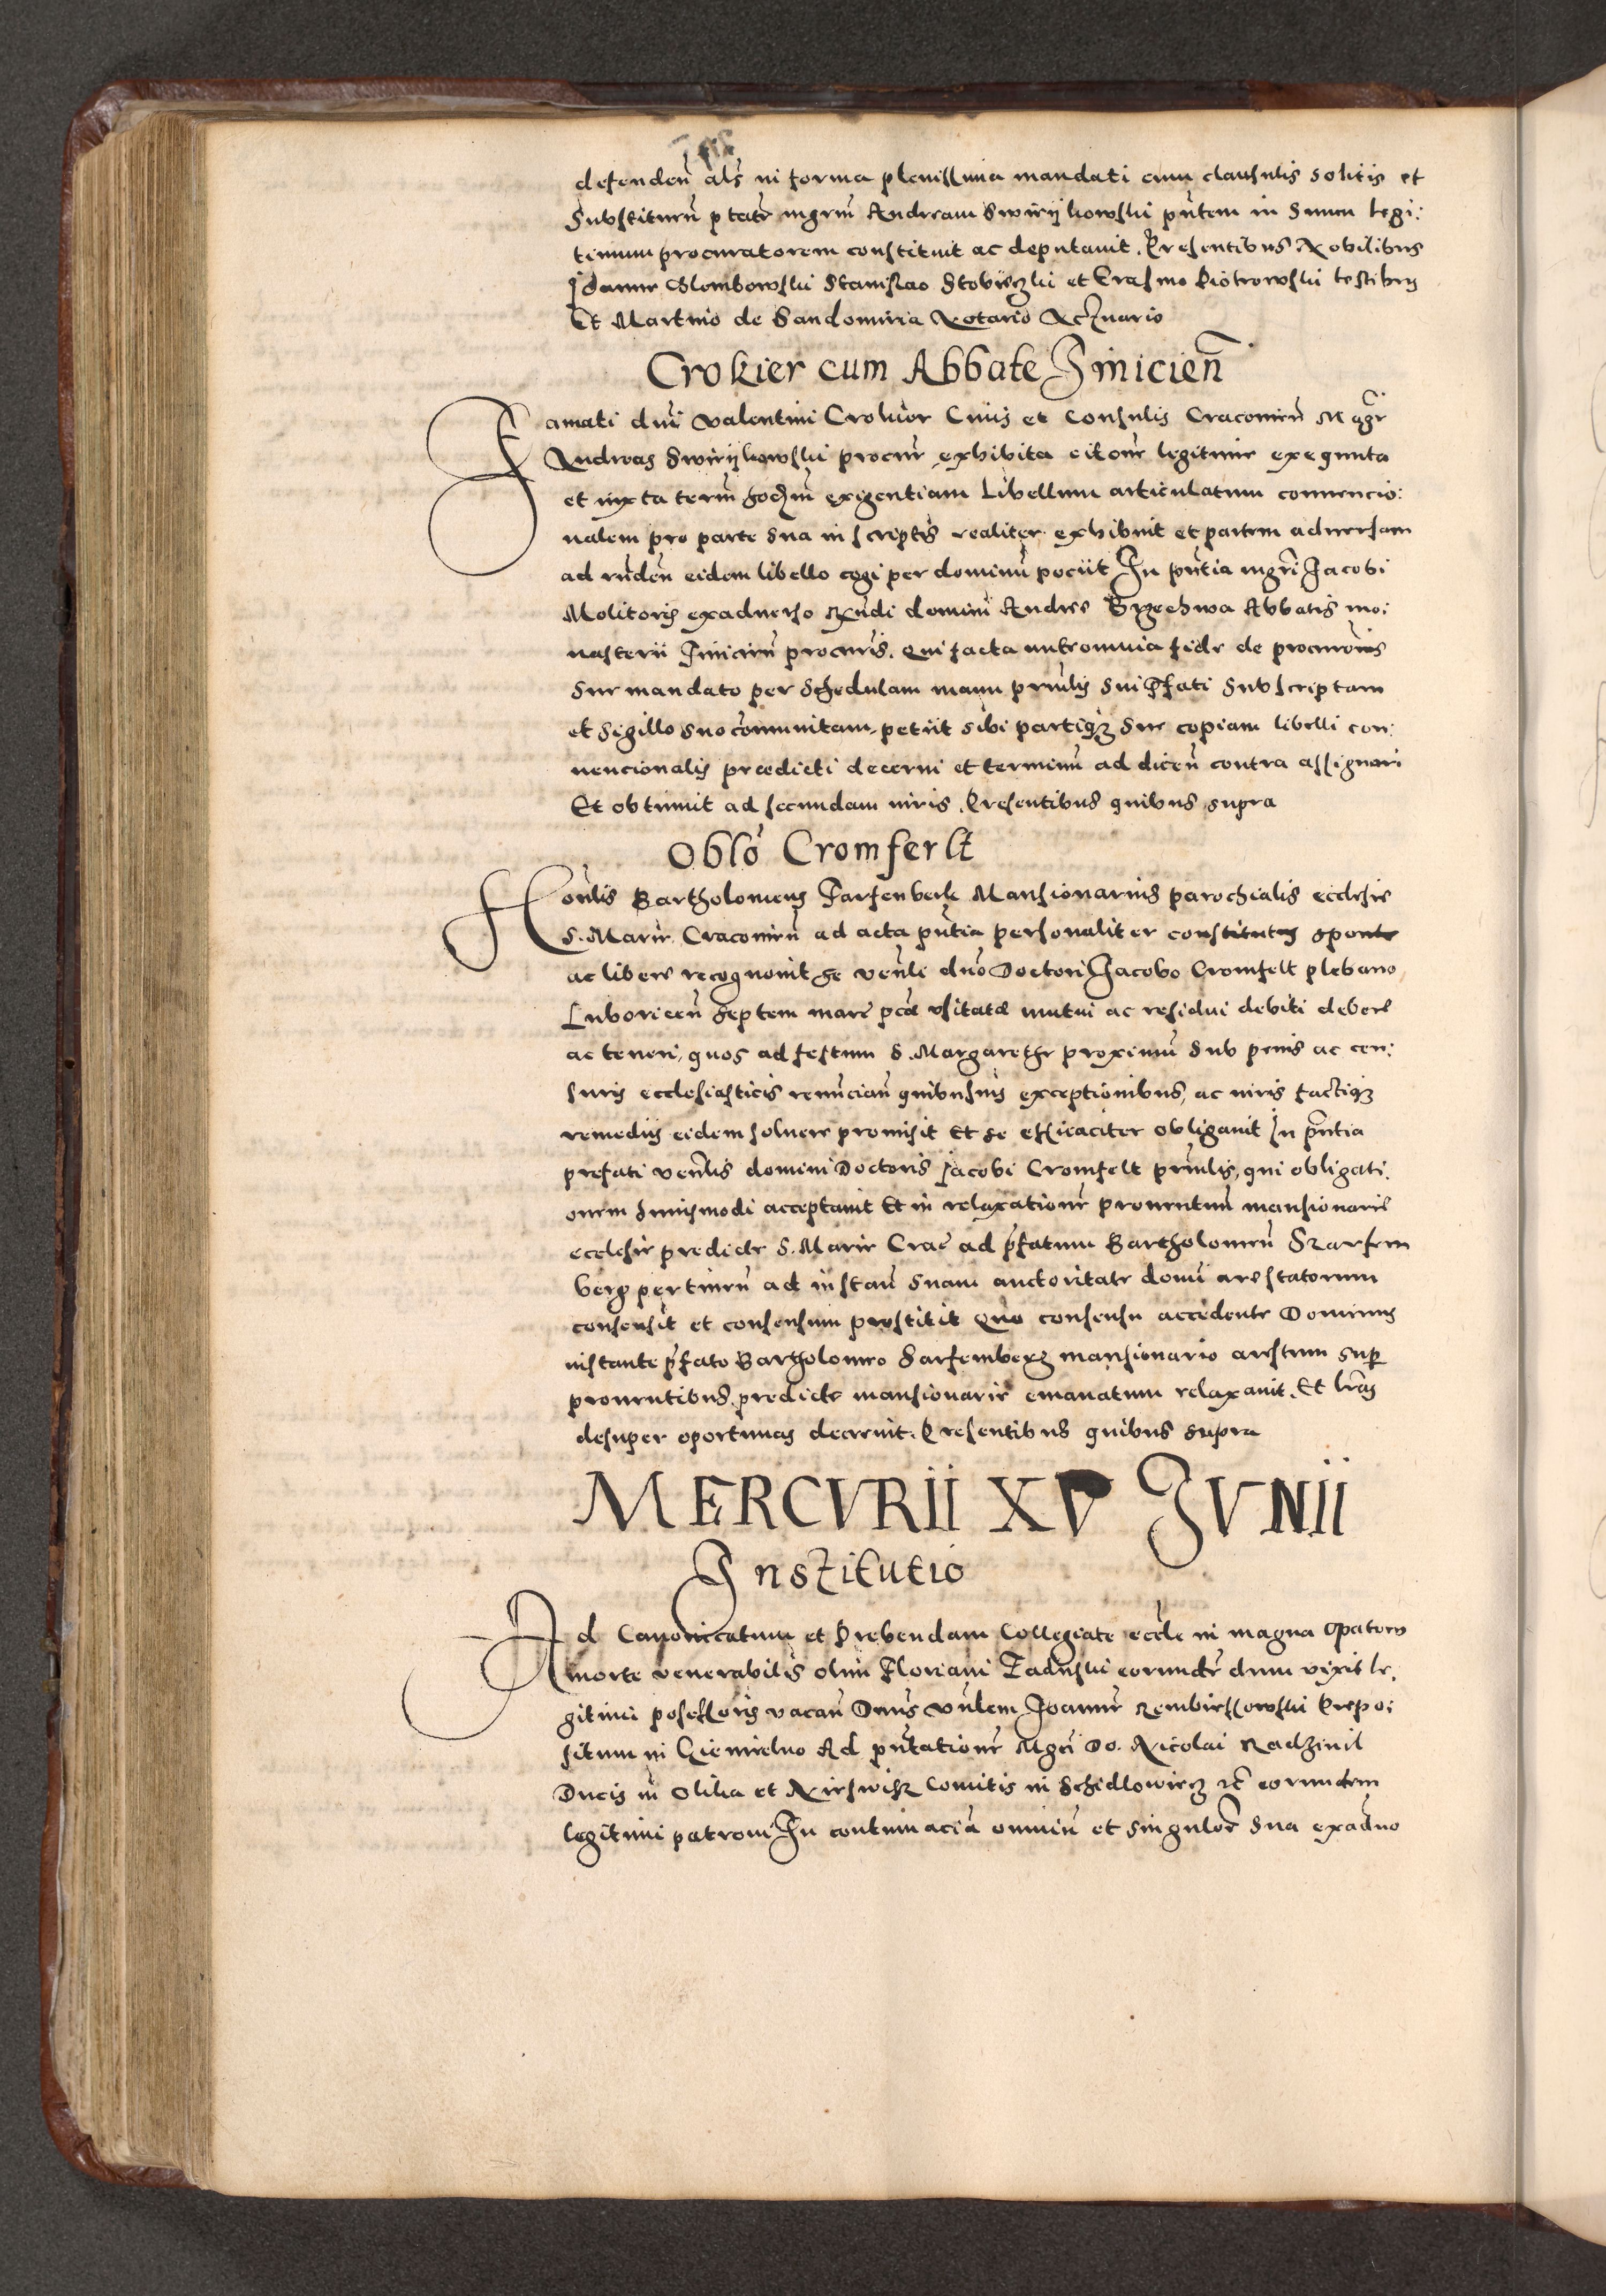 defendeñ als in forma plenissima mandati cum clausulis solitis et
Substituen ptate mgrm Andream Swirijkowski pñtem in Suum legi:
timum procuratorem constituit ac deputauit. Presentibus Nobilibus
Joanne Glembowski Stanislao et Erasmo Piotrowski testibus
Et Martino de Sandomiria Notario Actuario
Crokier cum Abbate Jinicieñ
Famati dni Valentini Crokier Ciuis et Consulis Cracouieñ Mgr
Andreas Swirijkowski procur exhibita citone legitime exequuta
et iuxta term hodm exigentiam Libellum articulatum conuencio:
nalem pro parte sua in scriptis realiter exhibuit et partem aduersam
ad rñdeñ eidem libello cogi per dominũ peciit In pñtia mgri Jacobi
Molitoris exaduerso Rxndi domini Andree Brzechwa Abbatis mo:
nasterii Jinicieñ procuris. Qui facta nutromnia fide de procuronis
Sue mandato per Schedulam manu prĩnlis sui pfati Subscriptam
et Sigillo suo communitam, petiit sibi partiqȝ sue copiam libelli con:
uencionalis praedicti decerni et terminũ ad diceñ contra assignari
Et obtinuit ad secundam iuris. Presentibus quibus supra
Oblo Cromferlt
Honlis Bartholomeus Farfenberk Mansionarius parochialis ecclesie
S. Marie Cracouieñ ad acta pñtia personaliter constitutus sponte
ac libere recognouit se venli dno Doctori Jacobo Cromfelt plebano
Luboriceñ Septem marc pcae vsitatae mutui ac residui debiti debere
ac teneri, quos ad festum S. Margarethe proximũ Sub penis ac cen:
suris ecclesiasticis renunciañ quibusuis exceptionibus, ac iuris factiqȝ
remediis eidem soluere promisit Et se efficaciter obligauit In pñtia
prefati venlis domini Doctoris Jacobi Cromfelt prĩnlis, qui obligati:
onem huiusmodi acceptauit Et in relaxatione prouentuũ mansionarie
ecclesie predicte S. Marie Crac ad pfatum Bartholomeũ Szarfem
berg pertineñ ad instañ suam auctoritate domi arestatorum
consensit et consensum prestitit Quo consensu accedente Dominus
instante pfato Bartholomeo Sarfemberg mansionario arestum Sup
prouentibus predicte mansionarie emanatum relaxauit. Et lras
desuper oportunas decreuit. Presentibus quibus supra
MERCVRII XV JVNII
Institutio
Ad Canonicatum et Prebendam Collegiate eccle in magna Opatow
morte venerabilis olim Floriani eorunde dum vixit le:
gitimi possessoris vacañ Dnus Vnlem Joanne Rembiessowski Prepo:
situm in Ad pñtatione Mgci Do. Nicolai Radziuil
Ducis in Olika et Nieswisz Comitis in Schidlowiecz ec eorundem
legitimi patroni In contumaciã omniũ et singulor sua exaduo